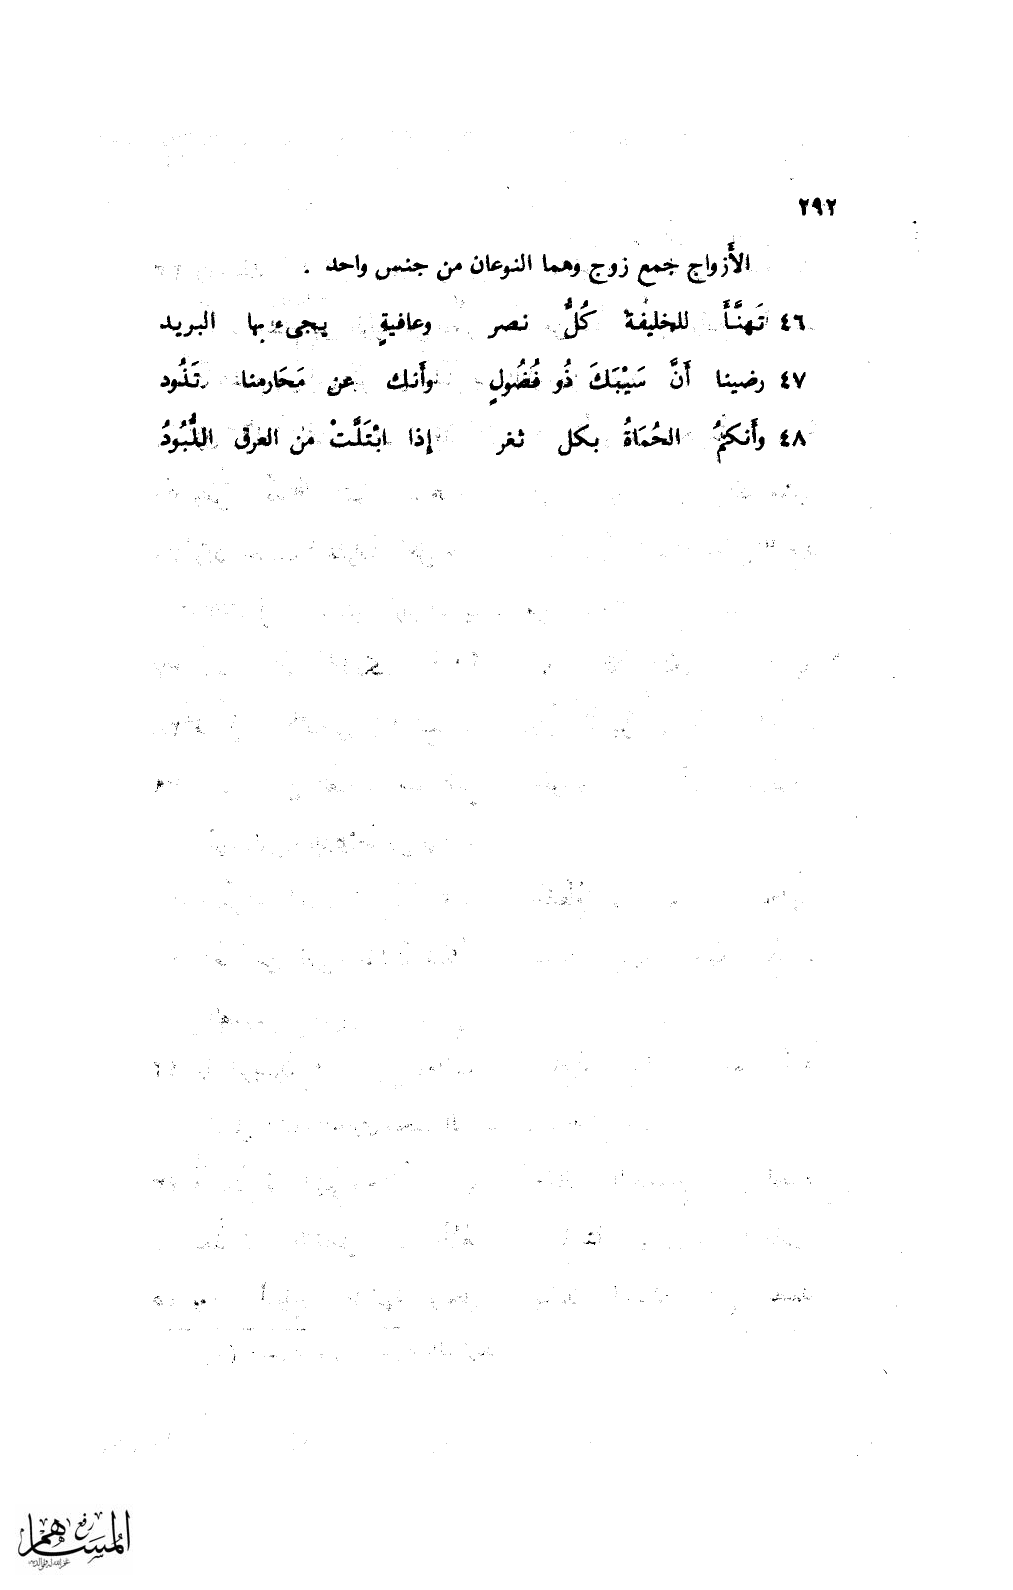 ٢٩٢
الأَزواج جمع زوج وهما النوعان من جنس واحد .
٤٦ تَهنَّأَ للخليفة كُلُّ نصر وعافيةٍ يجىء بها البريد
٤٧ رضينا أَنَّ سَيْبَكَ ذُو فُضُولٍ وأَنك عن مَحَارمنا تَذُود
٤٨ وأَنكمُ الحُمَاةُ بكل ثغر إذا ابْتَلَّتْ من العرق اللُّبُودُ
رفع
المساهم